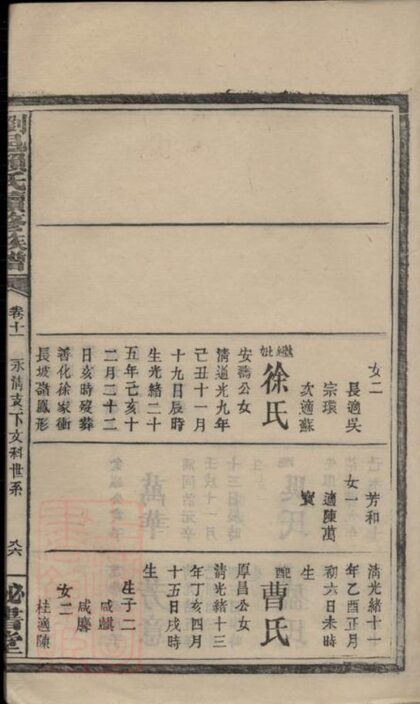 女二
長適吳
宗環
次適蘇
繼妣
徐氏
安淼公女
清道光九年
己丑十一月
十九日辰時
生光緒二十
五年己亥十
二月二十二
日亥時歿葬
善化徐家衝
長坡嶺鳳形
芳和
女一
適陳萬
寶
清光緒十一
年乙酉正月
初六日未時
生
配
曹氏
厚昌公女
清光緒十三
年丁亥四月
十五日戌時
生
生子二
咸麒
咸麐
女二
桂適陳
氏續修族譜
卷十一
永清支下文科世系
秘書堂